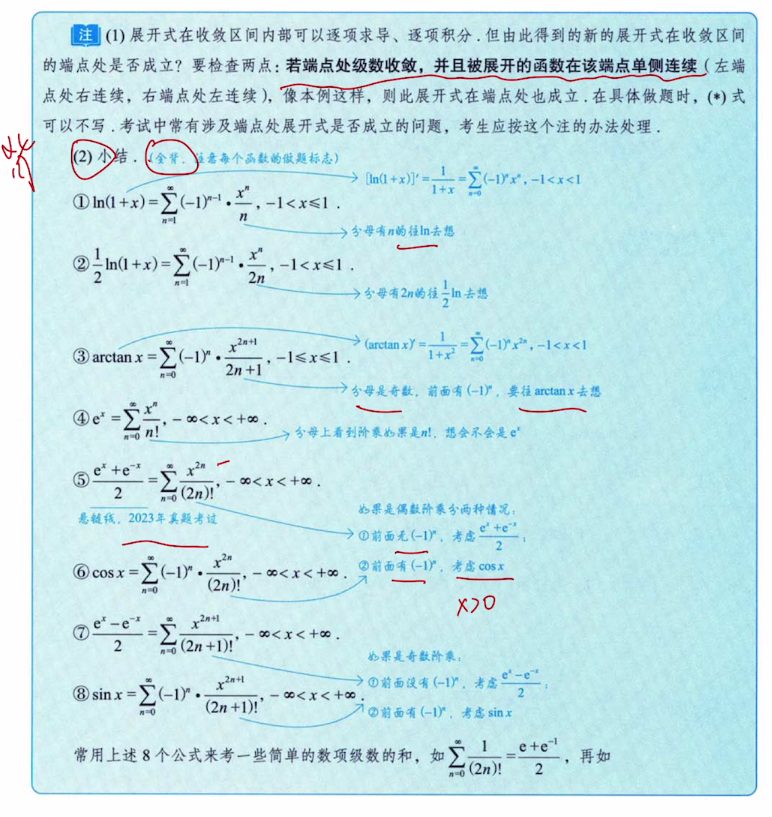 注 (1) 展开式在收敛区间内部可以逐项求导、逐项积分.但由此得到的新的展开式在收敛区间
的端点处是否成立？要检查两点：若端点处级数收敛，并且被展开的函数在该端点单侧连续（左端
点处右连续，右端点处左连续），像本例这样，则此展开式在端点处也成立.在具体做题时，(*) 式
可以不写.考试中常有涉及端点处展开式是否成立的问题，考生应按这个注的办法处理.
(2) 小结.(全背，注意每个函数的做题标志)
[ln(1+x)]′=1/(1+x)=∑_{n=0}^{∞}(-1)ⁿxⁿ, -1<x<1
① ln(1+x)=∑_{n=1}^{∞}(-1)ⁿ⁻¹·xⁿ/n, -1<x≤1.
分母有n的往ln去想
② 1/2 ln(1+x)=∑_{n=1}^{∞}(-1)ⁿ⁻¹·xⁿ/2n, -1<x≤1.
分母有2n的往1/2 ln去想
(arctan x)′=1/(1+x²)=∑_{n=0}^{∞}(-1)ⁿx²ⁿ, -1<x<1
③ arctan x=∑_{n=0}^{∞}(-1)ⁿ·x²ⁿ⁺¹/(2n+1), -1≤x≤1.
分母是奇数，前面有(-1)ⁿ，要往arctan x去想
④ eˣ=∑_{n=0}^{∞}xⁿ/n!, -∞<x<+∞.
分母上看到阶乘如果是n!，想会不会是eˣ
⑤ (eˣ+e⁻ˣ)/2=∑_{n=0}^{∞}x²ⁿ/(2n)!, -∞<x<+∞.
悬链线，2023年真题考过
如果是偶数阶乘分两种情况：
①前面无(-1)ⁿ，考虑(eˣ+e⁻ˣ)/2；
⑥ cos x=∑_{n=0}^{∞}(-1)ⁿ·x²ⁿ/(2n)!, -∞<x<+∞.
②前面有(-1)ⁿ，考虑cos x
x>0
⑦ (eˣ-e⁻ˣ)/2=∑_{n=0}^{∞}x²ⁿ⁺¹/(2n+1)!, -∞<x<+∞.
如果是奇数阶乘：
①前面没有(-1)ⁿ，考虑(eˣ-e⁻ˣ)/2；
⑧ sin x=∑_{n=0}^{∞}(-1)ⁿ·x²ⁿ⁺¹/(2n+1)!, -∞<x<+∞.
②前面有(-1)ⁿ，考虑sin x
常用上述8个公式来考一些简单的数项级数的和，如∑_{n=0}^{∞}1/(2n)!=(e+e⁻¹)/2，再如